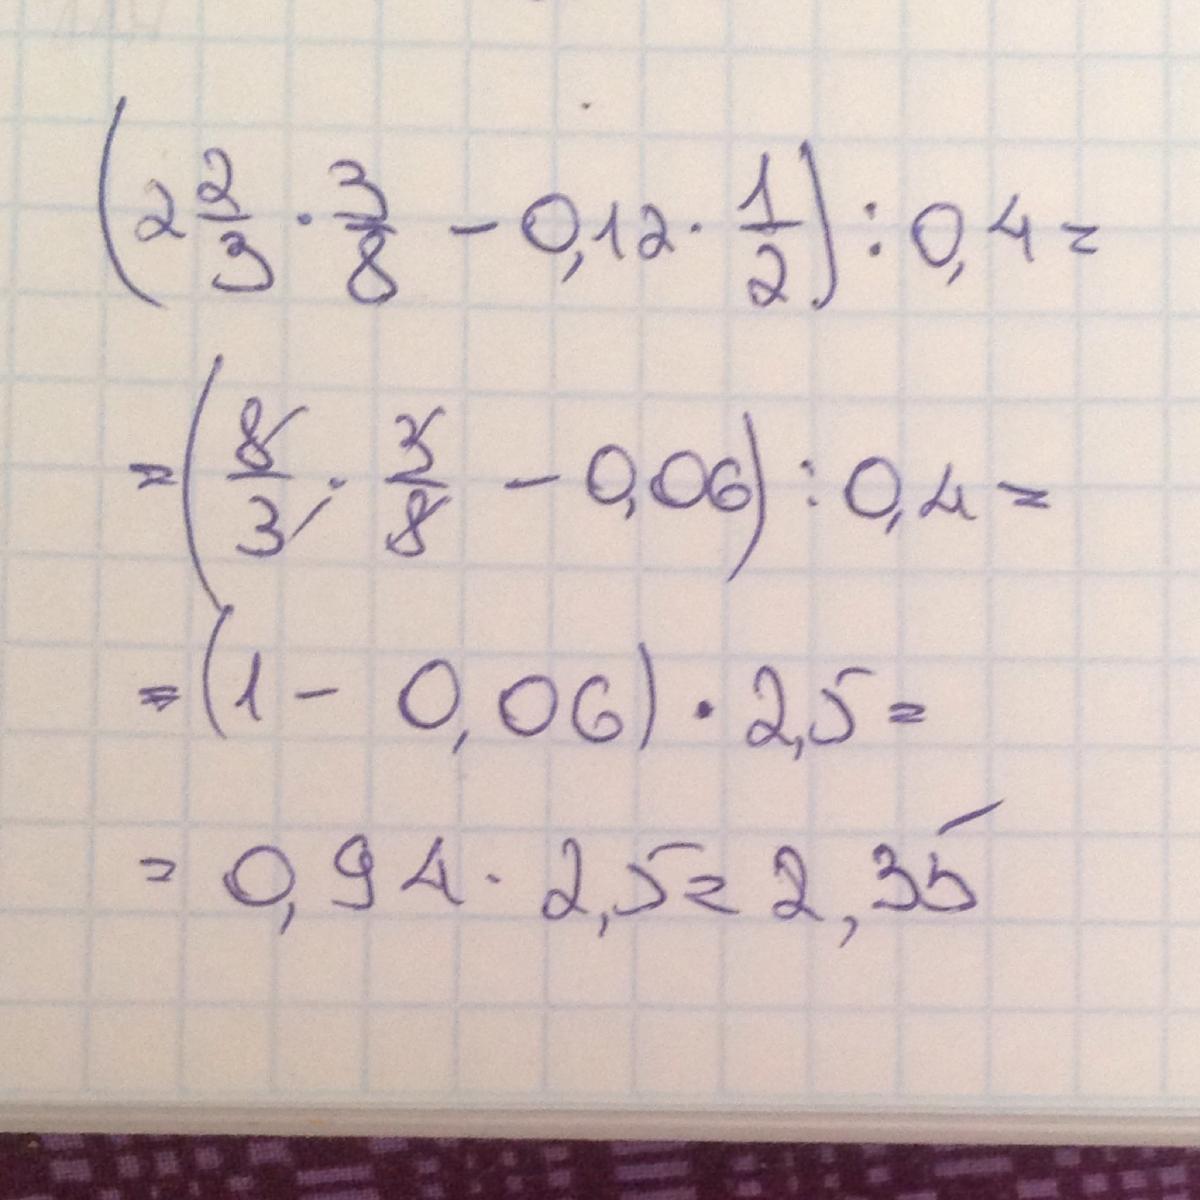 (2 2/3 · 3/8 − 0,12 · 1/2) : 0,4 =
= (8/3 · 3/8 − 0,06) : 0,4 =
= (1 − 0,06) · 2,5 =
= 0,94 · 2,5 = 2,35